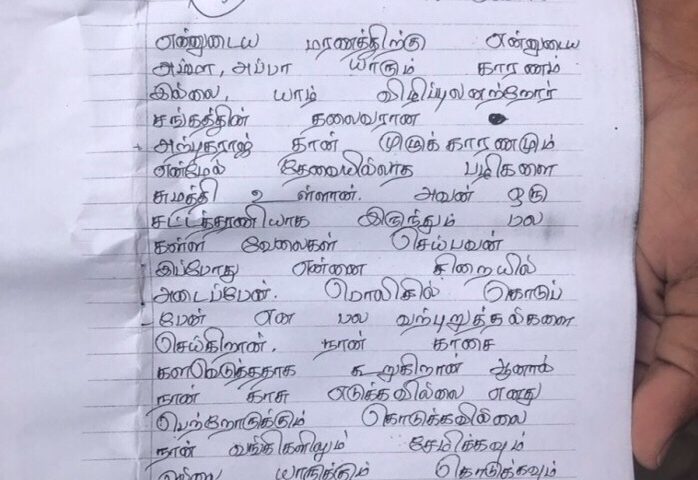 என்னுடைய மரணத்திற்கு என்னுடைய
அம்மா, அப்பா யாரும் காரணம்
இல்லை. யாழ் விழிப்புலனற்றோர்
சங்கத்தின் தலைவரான
அல்பதராஜ் தான் முழுக் காரணமும்
என்மேல் தேவையில்லாத பழிகளை
சுமத்தி உள்ளான். அவன் ஒரு
சட்டத்தரணியாக இருந்தும் பல
கள்ள வேலைகள் செய்பவன்
இப்போது என்னை சிறையில்
அடைப்பேன். பொலிசில் கொடுப்
பேன் என பல வற்புறுத்தல்களை
செய்கிறான். நான் காசை
களவெடுத்ததாக கூறுகிறான் ஆனால்
நான் காசு எடுக்கவில்லை எனது
பெற்றோருக்கும் கொடுக்கவில்லை
நான் வங்கிகளிலும் சேமிக்கவும்
இல்லை யாருக்கும் கொடுக்கவும்